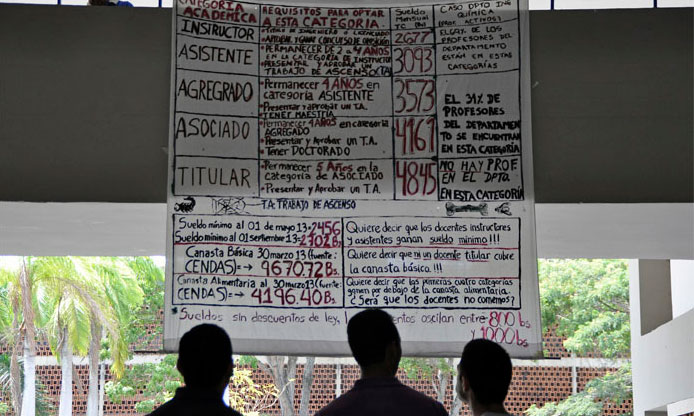 CATEGORÍA ACADÉMICA
REQUISITOS PARA OPTAR A ESTA CATEGORÍA
Sueldo Mensual TC (Bs)
CASO DPTO ING QUÍMICA (PROF ACTIVOS)
INSTRUCTOR
• TITULO DE INGENIERO O LICENCIADO
• APROBAR Y GANAR CONCURSO DE OPOSICIÓN
2677
ASISTENTE
• PERMANECER DE 2 a 4 AÑOS EN LA CATEGORIA DE INSTRUCTOR
• PRESENTAR Y APROBAR UN TRABAJO DE ASCENSO (TA)
3093
DE LOS PROFESORES DEL DEPARTAMENTO ESTÁN EN ESTAS CATEGORÍAS
AGREGADO
• Permanecer 4 AÑOS en categoría ASISTENTE
• Presentar y aprobar un T.A.
• TENER MAESTRÍA
3573
ASOCIADO
• Permanecer 4 AÑOS en categoría AGREGADO
• Presentar y Aprobar un T.A
• Tener DOCTORADO
4161
EL 31% DE PROFESORES DEL DEPARTAMENTO SE ENCUENTRAN EN ESTA CATEGORÍA
TITULAR
• Permanecer 5 Años en la categoría de ASOCIADO
• Presentar y Aprobar un T.A.
4845
NO HAY PROF EN EL DPTO. EN ESTA CATEGORÍA
T.A: TRABAJO DE ASCENSO
Sueldo mínimo al 01 de mayo 13→2456
Sueldo mínimo al 01 septiembre 13→2702 Bs
Quiere decir que los docentes instructores y asistentes ganan sueldo mínimo!!!
Canasta Básica 30 marzo 13 (fuente: CENDAS)=→ 9670.72 Bs.
Quiere decir que ni un docente titular cubre la canasta básica!!!
Canasta Alimentaria al 30 marzo 13 (fuente: CENDAS)=→ 4196.40 Bs
Quiere decir que las primeras cuatro categorías ganan por debajo de la canasta alimentaria. ¿Será que los docentes no comemos?
Sueldos sin descuentos de ley, oscilan entre 800 Bs y 1000 Bs